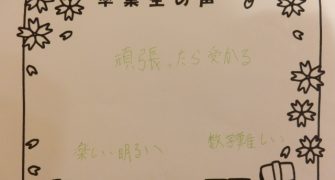 卒業生の声
頑張ったら受かる
楽しい明るい
数学難しい